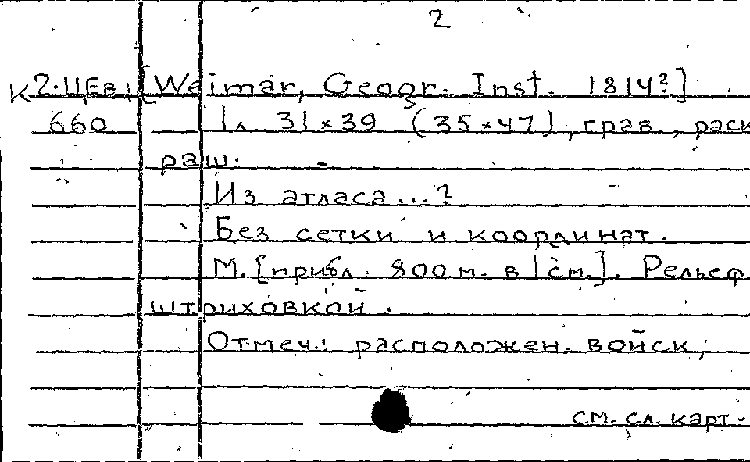 2
К2-ЦЕв1 [Weimar, Geogr. Inst. 1814?]
660 1л 31×39 (35×47), грав., раск
раш.
Из атласа...?
Без сетки и координат.
М. [прибл. 800 м. в 1 см.]. Рельеф
штриховкой.
Отмеч.: расположен. войск,
см. сл. карт.